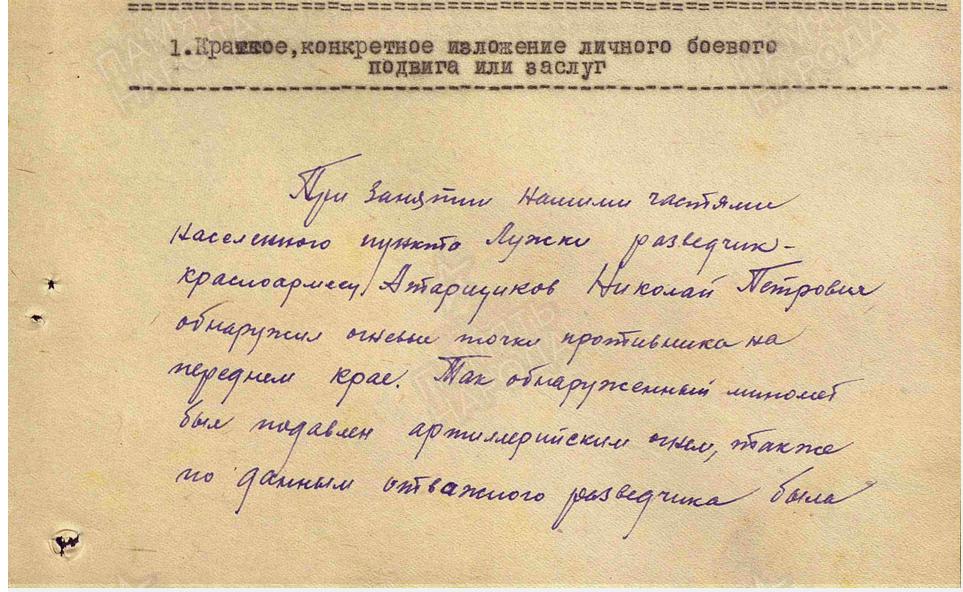 1.Краткое,конкретное изложение личного боевого
подвига или заслуг
При занятии нашими частями
населенного пункта Лужки разведчик-
красноармеец Атарщиков Николай Петрович
обнаружил огневые точки противника на
переднем крае. Так обнаруженный миномет
был подавлен артиллерийским огнем, также
по данным отважного разведчика была
ПАМЯТЬ
НАРОДА